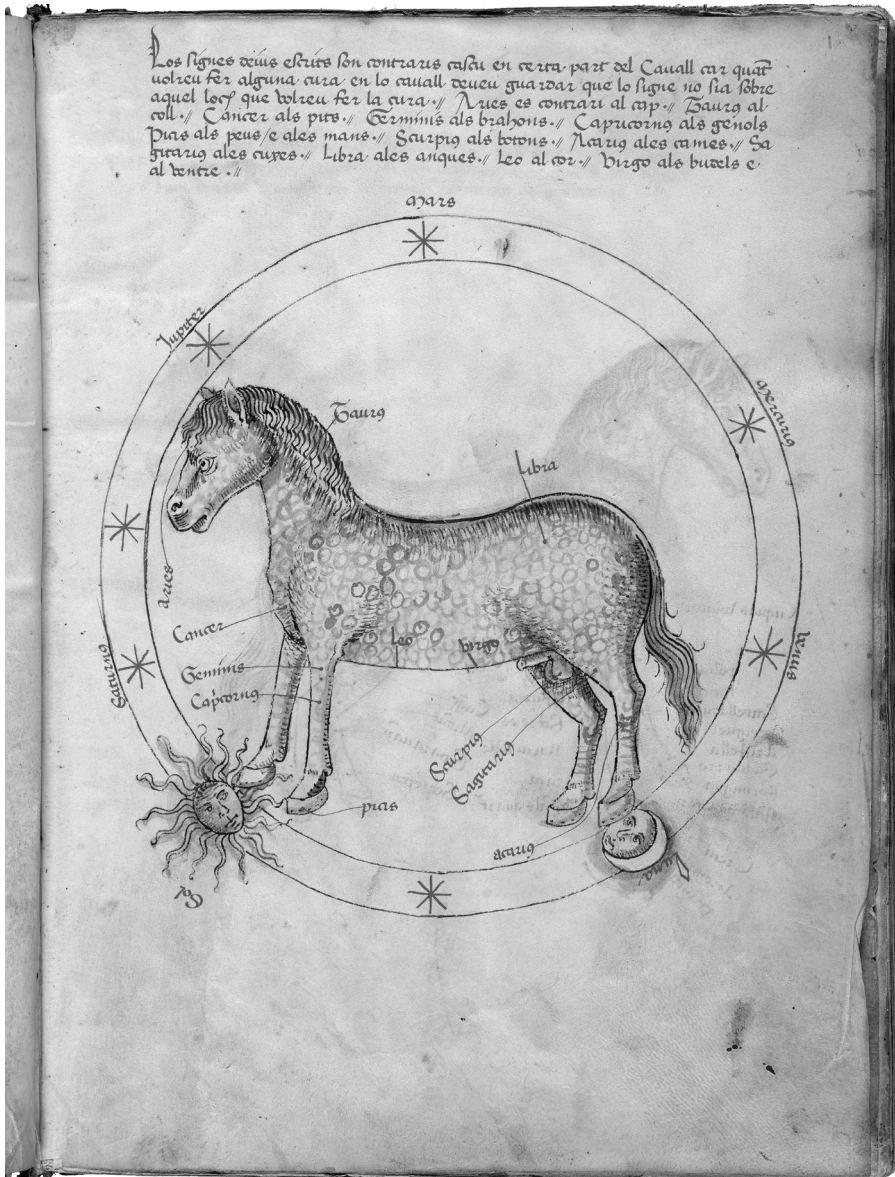 Los signes deius escrits son contraris cascu en certa part del Cavall car quāt
volreu fer alguna cura en lo cavall deveu guardar que lo signe no sia sobre
aquel loch que volreu fer la cura·// Aries es contrari al cap·// Taurꝯ al
coll·// Cancer als pits·// Geminis als brahons·// Capricornꝯ als genols
Picis als peus/e ales mans·// Scurpiꝯ als botons·// Acariꝯ ales cames·// Sa
gitariꝯ ales cuxes·// Libra ales anques·// Leo al cor·// Virgo als budels e
al ventre·//
Mars
Jupiter
Mercuriꝯ
Taurꝯ
Libra
aries
Cancer
Leo
Virgo
Geminis
Saturnꝯ
Venus
Cap̄cornꝯ
Scurpiꝯ
Sagitariꝯ
picis
acariꝯ
Luna
Sol